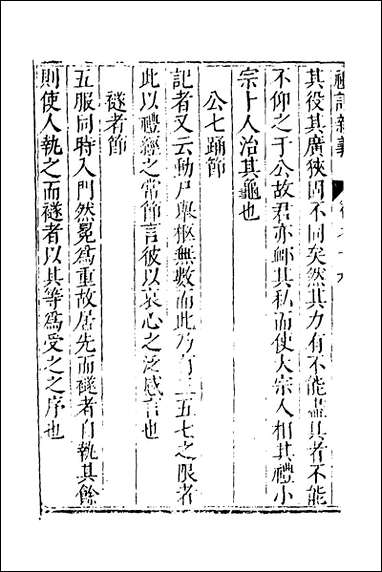 禮記新義　卷之十九
其役其廣狹固不同矣然其力有不能盡具者不能
不仰之于公故君亦邺其私而使大宗人相其禮小
宗卜人治其龜也
公七踊節
記者又云動尸舉柩無數而此乃有三五七之限者
此以禮經之常節言彼以哀心之泛感言也
襚者節
五服同時入門然冕爲重故居先而襚者自執其餘
則使人執之而襚者以其等爲受之之序也